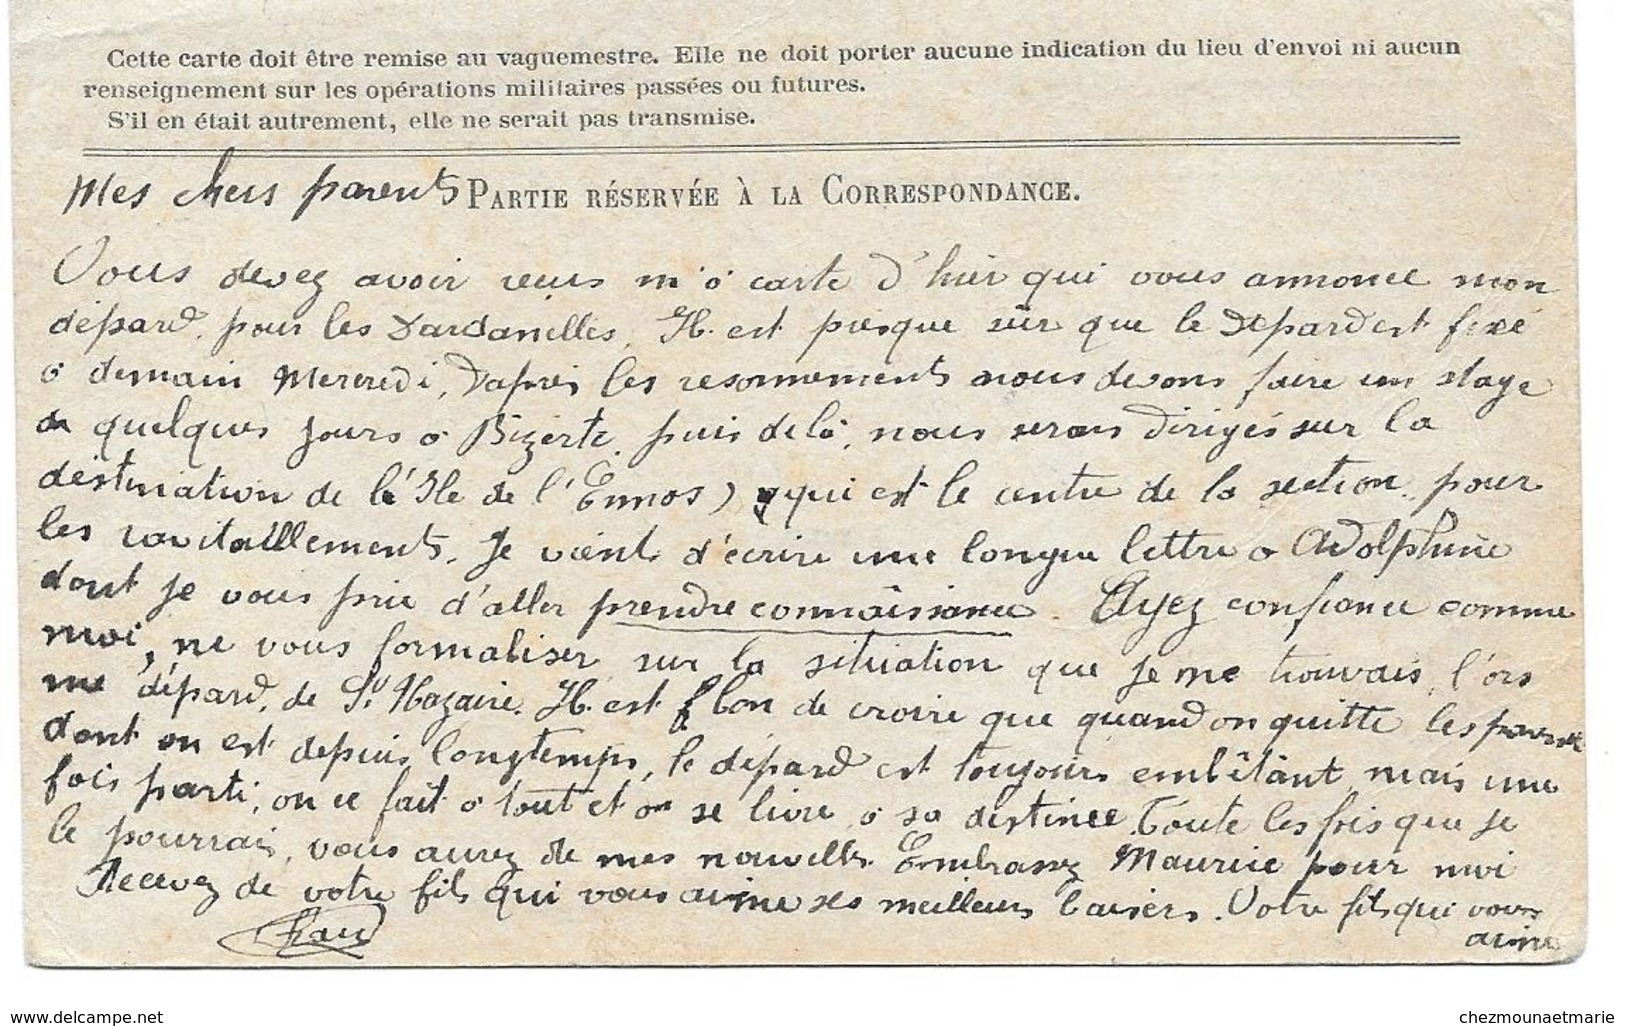 Cette carte doit être remise au vaguemestre. Elle ne doit porter aucune indication du lieu d'envoi ni aucun
renseignement sur les opérations militaires passées ou futures.
S'il en était autrement, elle ne serait pas transmise.
Mes chers parents PARTIE RÉSERVÉE À LA CORRESPONDANCE.
Vous devez avoir reçus m'a carte d'hier qui vous annonce mon
dépard, pour les Dardanelles, Il est presque sûr que le Dépard est fixé
a demain Mercredi, d'après les resonnements nous devons faire un stage
de quelques jours a Bizerte puis delà, nous serons dirigés sur la
destination de l'Ile de l'Ennos) qui est le centre de la section pour
les ravitaillements. Je vient d'écrire une longue lettre a Adolphine
dont je vous prie d'aller prendre connaissance. Ayez confiance comme
moi, ne vous formaliser sur la situation que je me trouvais, l'ors
me dépard, de St Nazaire. Il est bon de croire que quand on quitte les
dont on est depuis longtemps, le dépard est toujours embêtant, mais une
fois parti, on ce fait a tout et on se livre a sa destinée. Toute les fois que je
le pourrais, vous aurez de mes nouvelles. Embrassez Maurice pour moi
Recevez de votre fils qui vous aime ses meilleurs baisers. Votre fils qui vous
aime
delcampe.net
chezmounaetmarie